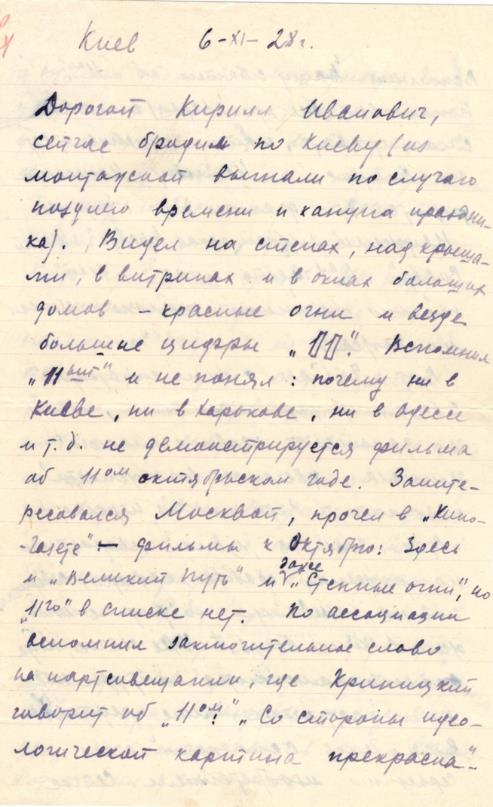 Киев 6-XI-28г.
Дорогой Кирилл Иванович,
сейчас бродим по Киеву (из
монтажной выгнали по случаю
позднего времени и кануна праздни-
ка). Видел на стенах, над крыша-
ми, в витринах и в окнах больших
домов – красные огни и везде
большие цифры „11“. Вспомнил
„11ый“ и не понял: почему ни в
Киеве, ни в Харькове, ни в Одессе
и т.д. не демонстрируется фильма
об 11ом октябрьском годе. Заинте-
ресовался Москвой, прочел в „Кино-
-газете“ – фильмы к Октябрю: Здесь
и „Великий путь“ и даже „Степные огни“, но
„11го“ в списке нет. По ассоциации
вспомнил заключительное слово
на партсовещании, где Криницкий
говорит об „11ом“: „Со стороны идео-
логической картина прекрасна“-